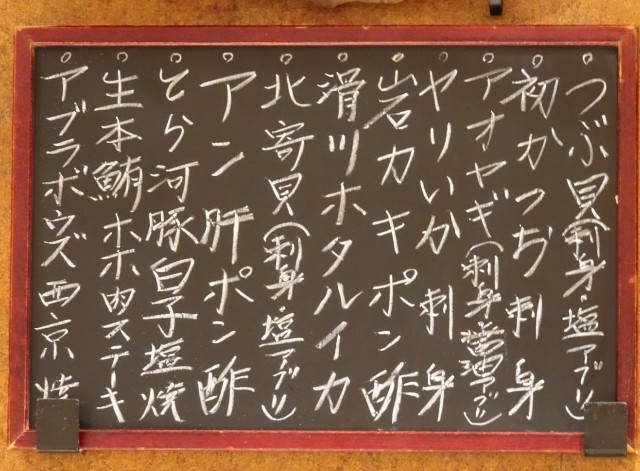 ○つぶ貝(刺身・塩アブリ)
○初かつお刺身
○アオヤギ(刺身・醤油アブリ)
○ヤリいか刺身
○岩カキポン酢
○滑川ホタルイカ
○北寄貝(刺身・塩アブリ)
○アン肝ポン酢
○とら河豚白子塩焼
○生本鮪ホホ肉ステーキ
○アブラボウズ西京焼